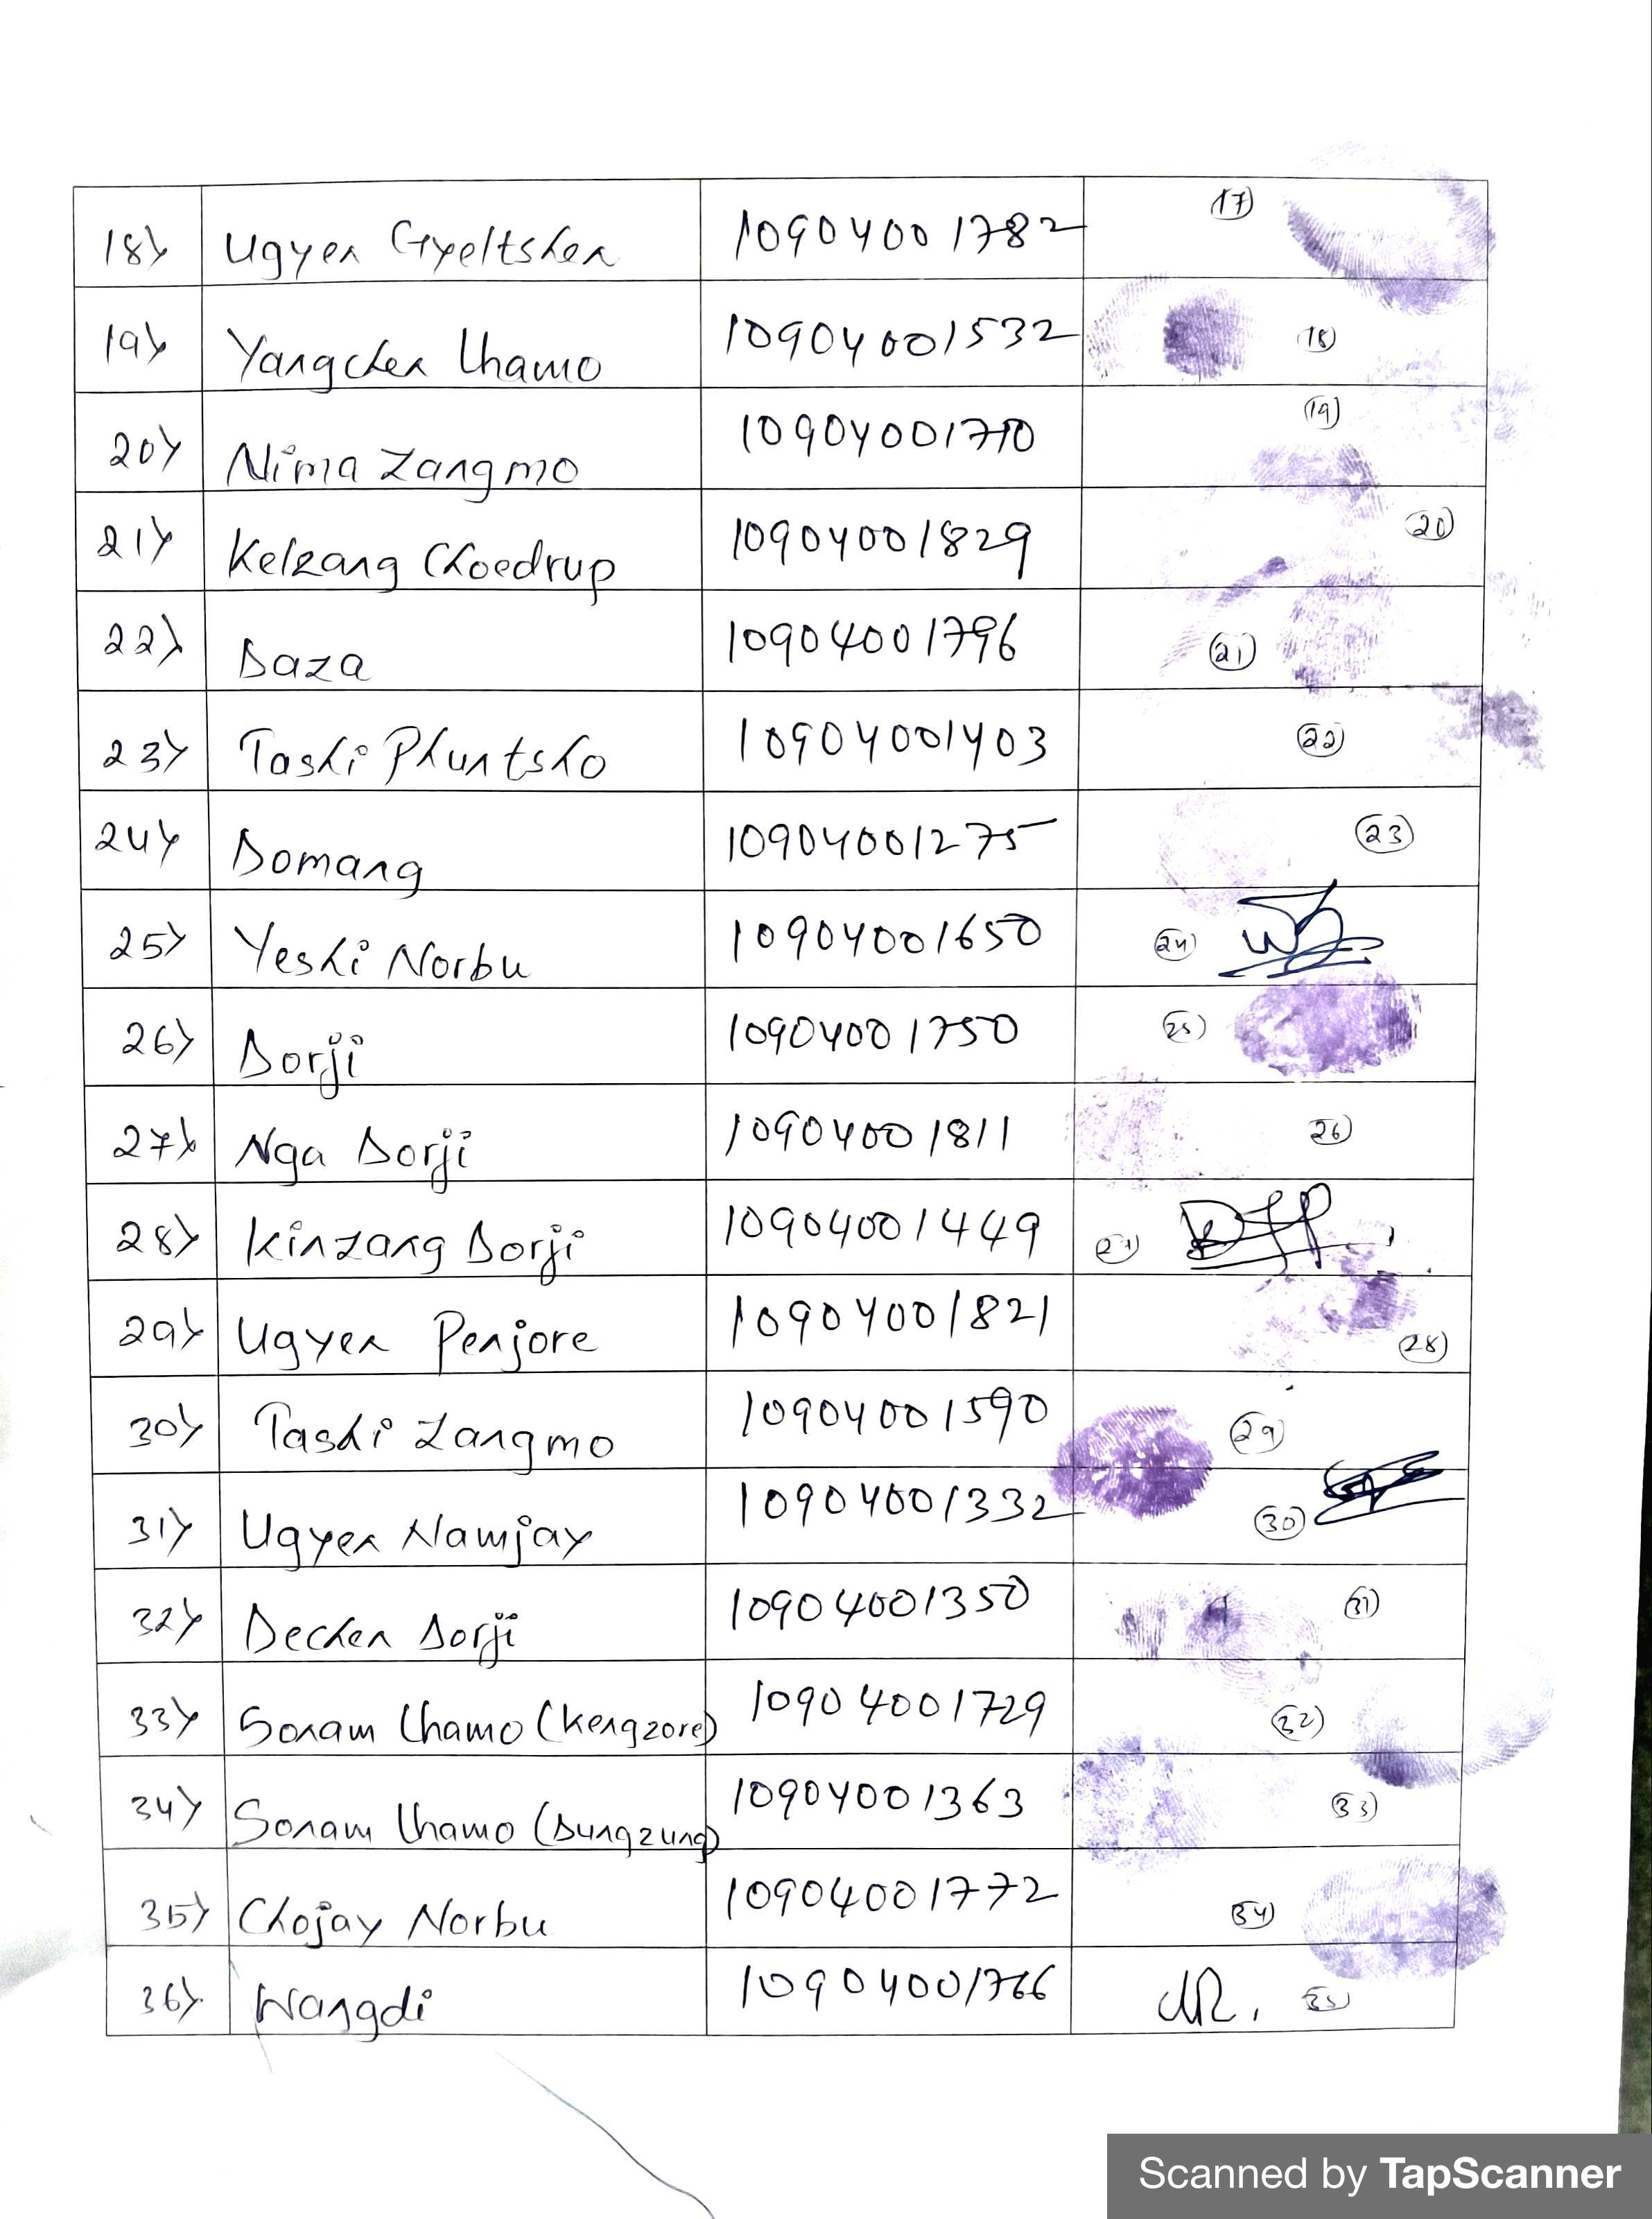 18) Ugyen Gyeltshen 10904001782 17)
19) Yangchen Lhamo 10904001532 18)
20) Nima Zangmo 10904001710 19)
21) Kelzang Choedrup 10904001829 20)
22) Daza 10904001796 21)
23) Tashi Phuntsho 10904001403 22)
24) Domang 10904001275 23)
25) Yeshi Norbu 10904001650 24)
26) Dorji 10904001750 25)
27) Nga Dorji 10904001811 26)
28) Kinzang Dorji 10904001449 27)
29) Ugyen Penjore 10904001821 28)
30) Tashi Zangmo 10904001590 29)
31) Ugyen Namjay 10904001332 30)
32) Dechen Dorji 10904001350 31)
33) Sonam Lhamo (Kengzore) 10904001729 32)
34) Sonam Lhamo (Dungzung) 10904001363 33)
35) Chojay Norbu 10904001772 34)
36) Wangdi 10904001766 35)
Scanned by TapScanner